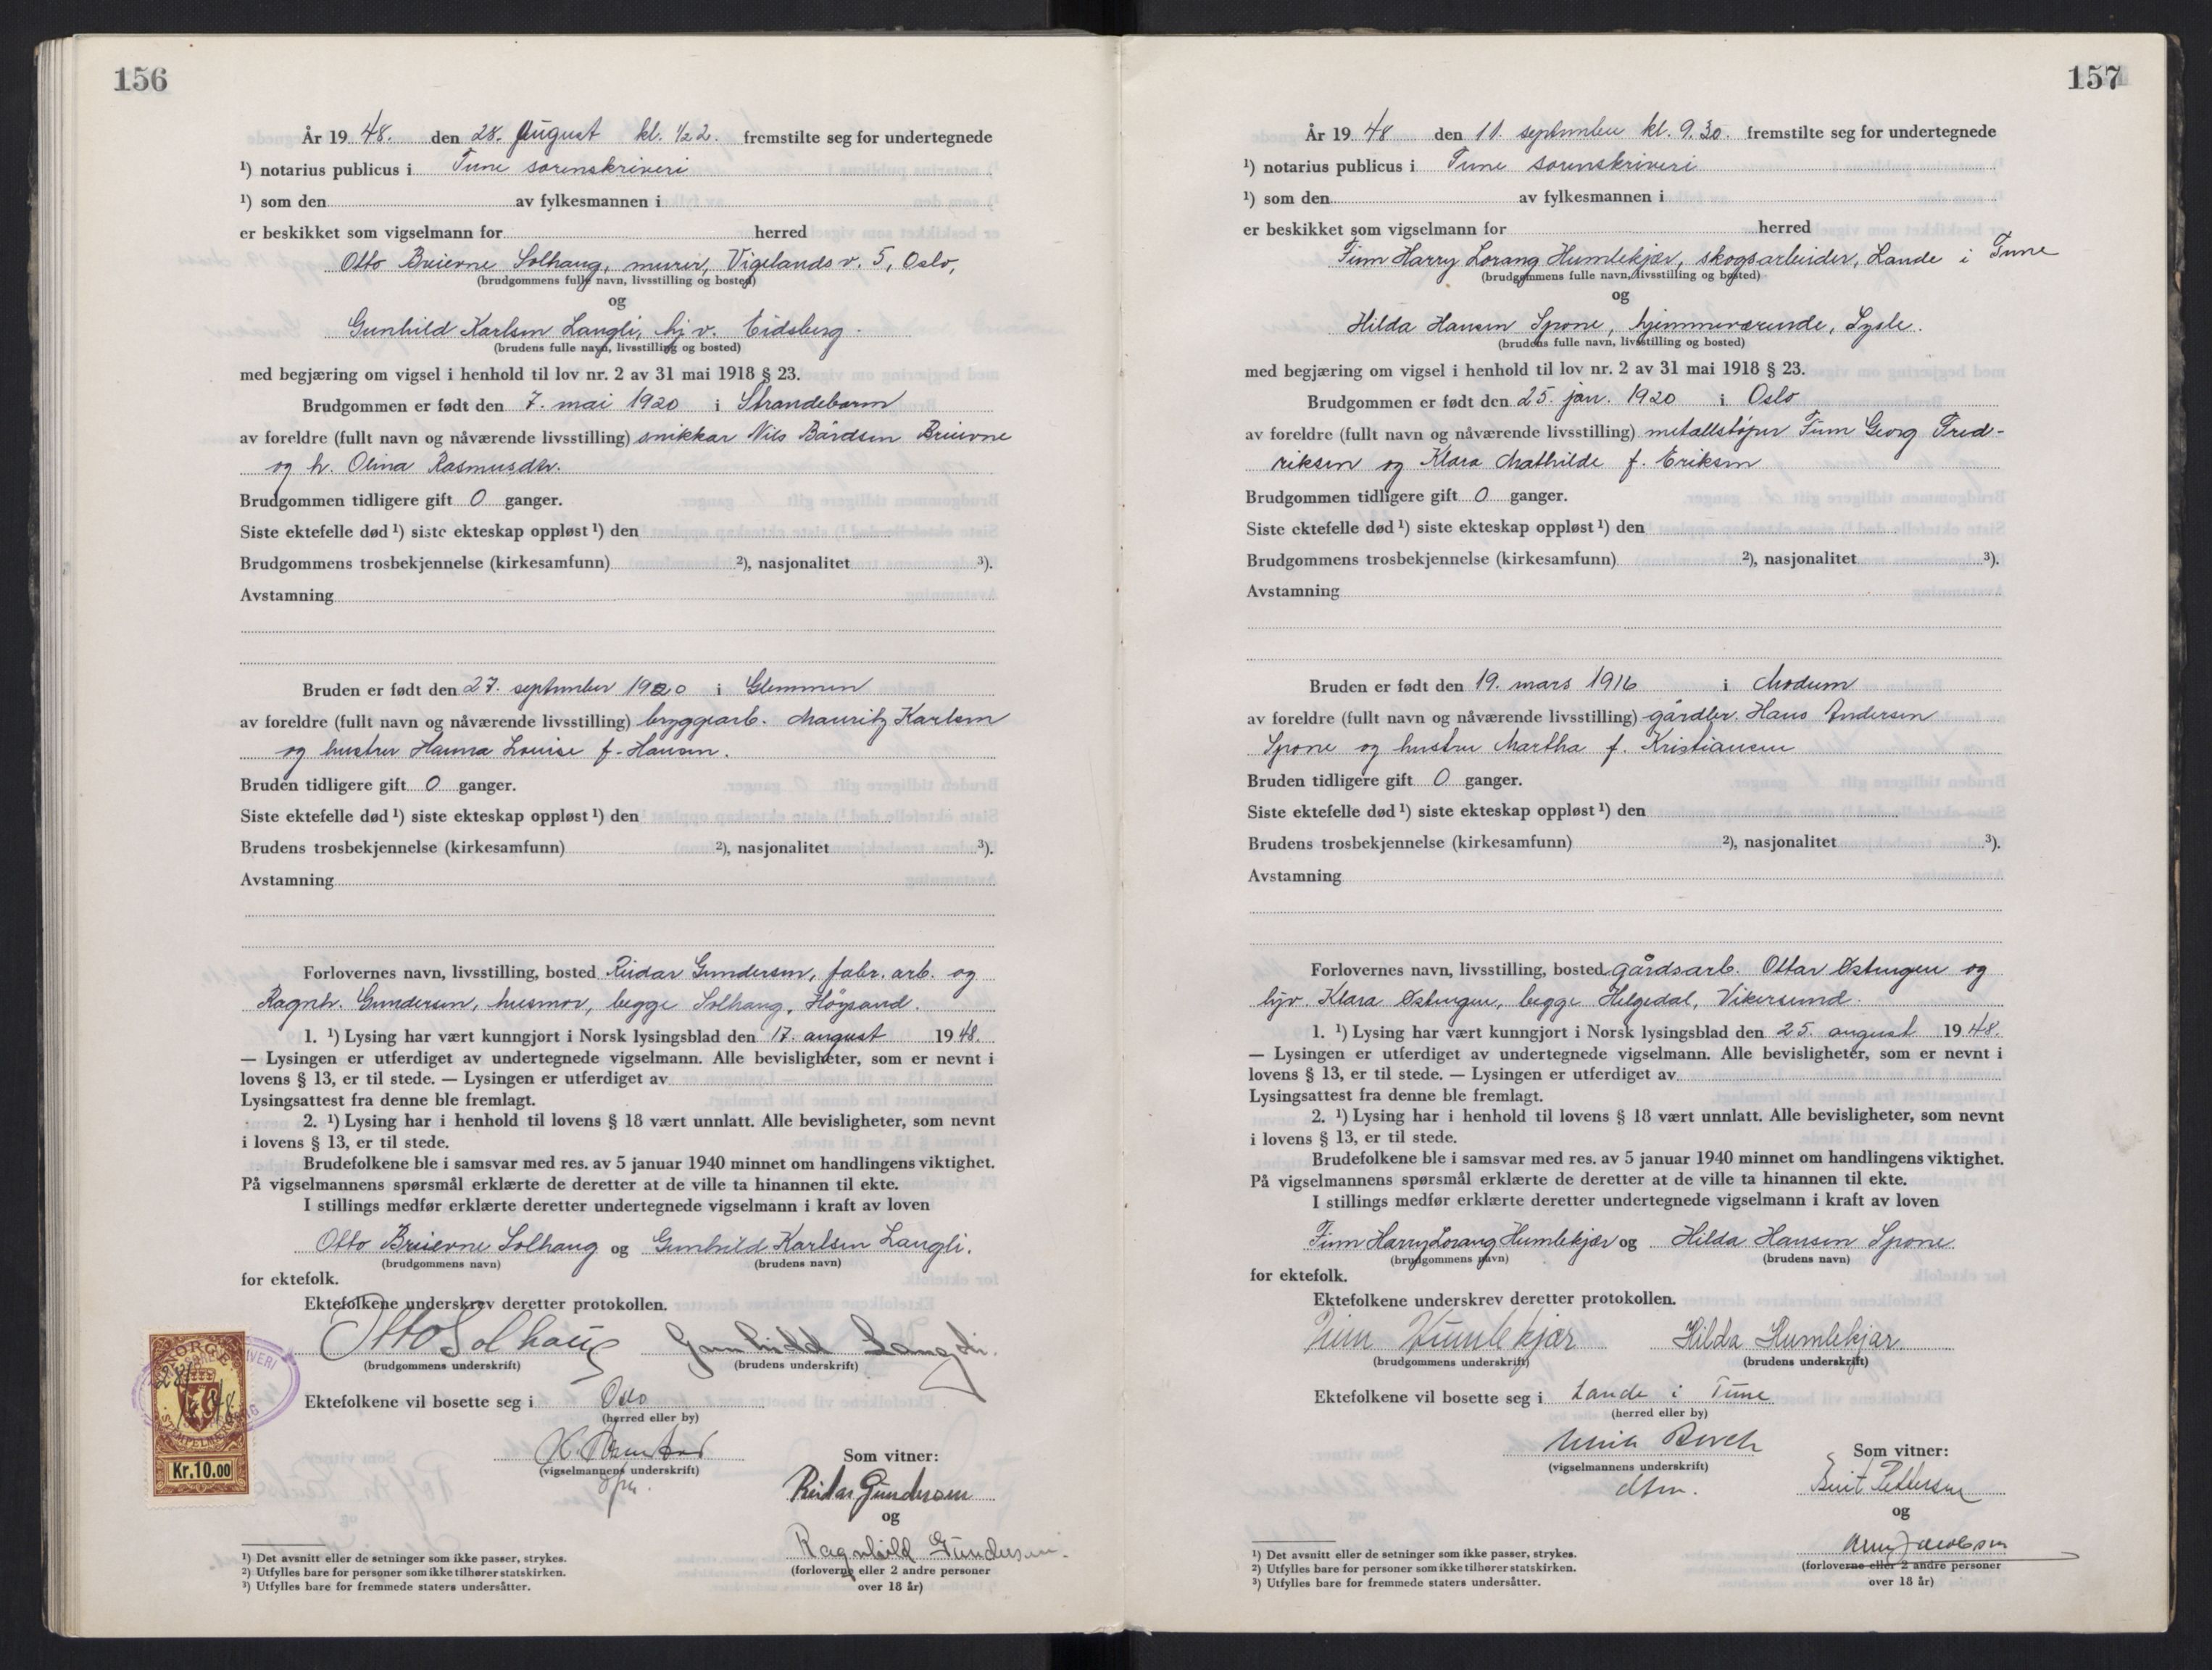 156
År 19 48. den 28. August kl. ½ 2. fremstilte seg for undertegnede
¹) notarius publicus i Tune sorenskriveri
¹) som den av fylkesmannen i
er beskikket som vigselmann for herred
Otto Breievne Solhaug, murer, Vigelands v. 5, Oslo,
(brudgommens fulle navn, livsstilling og bosted)
og
Gunhild Karlsen Langli, hj. v. Eidsberg.
(brudens fulle navn, livsstilling og bosted)
med begjæring om vigsel i henhold til lov nr. 2 av 31 mai 1918 § 23.
Brudgommen er født den 7. mai 1920 i Strandebarm
av foreldre (fullt navn og nåværende livsstilling) snikkar Nils Bårdsen Breievne
og h. Olina Rasmusdtr.
Brudgommen tidligere gift 0 ganger.
Siste ektefelle død ¹) siste ekteskap oppløst ¹) den
Brudgommens trosbekjennelse (kirkesamfunn) ²), nasjonalitet ³).
Avstamning
Bruden er født den 27. september 1920 i Glemmen
av foreldre (fullt navn og nåværende livsstilling) bryggearb. Mauritz Karlsen
og hustru Hanna Louise f. Hansen.
Bruden tidligere gift 0 ganger.
Siste ektefelle død ¹) siste ekteskap oppløst ¹) den
Brudens trosbekjennelse (kirkesamfunn) ²), nasjonalitet ³).
Avstamning
Forlovernes navn, livsstilling, bosted Reidar Gundersen, fabr. arb. og
Ragnh. Gundersen, husmor, begge Solhaug, Høysand.
1. ¹) Lysing har vært kunngjort i Norsk lysingsblad den 17. august 19 48.
— Lysingen er utferdiget av undertegnede vigselmann. Alle bevisligheter, som er nevnt i
lovens § 13, er til stede. — Lysingen er utferdiget av
Lysingsattest fra denne ble fremlagt.
2. ¹) Lysing har i henhold til lovens § 18 vært unnlatt. Alle bevisligheter, som nevnt
i lovens § 13, er til stede.
Brudefolkene ble i samsvar med res. av 5 januar 1940 minnet om handlingens viktighet.
På vigselmannens spørsmål erklærte de deretter at de ville ta hinannen til ekte.
I stillings medfør erklærte deretter undertegnede vigselmann i kraft av loven
Otto Breievne Solhaug og Gunhild Karlsen Langli.
(brudgommens navn) (brudens navn)
for ektefolk.
Ektefolkene underskrev deretter protokollen.
Otto Solhaug Gunhild Langli.
(brudgommens underskrift) (brudens underskrift)
NORGE
28/8 48
STEMPELMERKE
Kr.10.00
Ektefolkene vil bosette seg i Oslo
(herred eller by)
(vigselmannens underskrift)
Som vitner:
Reidar Gundersen
og
Ragnhild Gundersen.
(forloverne eller 2 andre personer
over 18 år)
¹) Det avsnitt eller de setninger som ikke passer, strykes.
²) Utfylles bare for personer som ikke tilhører statskirken.
³) Utfylles bare for fremmede staters undersåtter.
157
År 19 48 den 11. september kl. 9.30. fremstilte seg for undertegnede
¹) notarius publicus i Tune sorenskriveri
¹) som den av fylkesmannen i
er beskikket som vigselmann for herred
Finn Harry Lorang Humlekjær, skogsarbeider, Lande i Tune
(brudgommens fulle navn, livsstilling og bosted)
og
Hilda Hansen Spone, hjemmeværende, Sysle.
(brudens fulle navn, livsstilling og bosted)
med begjæring om vigsel i henhold til lov nr. 2 av 31 mai 1918 § 23.
Brudgommen er født den 25. jan. 1920 i Oslo
av foreldre (fullt navn og nåværende livsstilling) metallstøper Finn Georg Fred-
riksen og Klara Mathilde f. Eriksen
Brudgommen tidligere gift 0 ganger.
Siste ektefelle død ¹) siste ekteskap oppløst ¹) den
Brudgommens trosbekjennelse (kirkesamfunn) ²), nasjonalitet ³).
Avstamning
Bruden er født den 19. mars 1916 i Modum
av foreldre (fullt navn og nåværende livsstilling) gårdbr. Hans Andersen
Spone og hustru Martha f. Kristiansen
Bruden tidligere gift 0 ganger.
Siste ektefelle død ¹) siste ekteskap oppløst ¹) den
Brudens trosbekjennelse (kirkesamfunn) ²), nasjonalitet ³).
Avstamning
Forlovernes navn, livsstilling, bosted gårdsarb. Ottar Østengen og
hjv. Klara Østengen, begge Helgedal, Vikersund.
1. ¹) Lysing har vært kunngjort i Norsk lysingsblad den 25. august 19 48.
— Lysingen er utferdiget av undertegnede vigselmann. Alle bevisligheter, som er nevnt i
lovens § 13, er til stede. — Lysingen er utferdiget av
Lysingsattest fra denne ble fremlagt.
2. ¹) Lysing har i henhold til lovens § 18 vært unnlatt. Alle bevisligheter, som nevnt
i lovens § 13, er til stede.
Brudefolkene ble i samsvar med res. av 5 januar 1940 minnet om handlingens viktighet.
På vigselmannens spørsmål erklærte de deretter at de ville ta hinannen til ekte.
I stillings medfør erklærte deretter undertegnede vigselmann i kraft av loven
Finn Harry Lorang Humlekjær og Hilda Hansen Spone
(brudgommens navn) (brudens navn)
for ektefolk.
Ektefolkene underskrev deretter protokollen.
Finn Humlekjær Hilda Humlekjær
(brudgommens underskrift) (brudens underskrift)
Ektefolkene vil bosette seg i Lande i Tune
(herred eller by)
(vigselmannens underskrift)
dfm.
Som vitner:
Berit Pettersen
og
Arne Jacobsen
(forloverne eller 2 andre personer
over 18 år)
¹) Det avsnitt eller de setninger som ikke passer, strykes.
²) Utfylles bare for personer som ikke tilhører statskirken.
³) Utfylles bare for fremmede staters undersåtter.